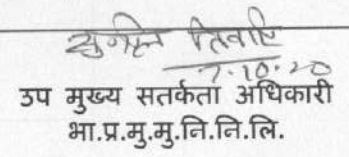 7.10.20
उप मुख्य सतर्कता अधिकारी
भा.प्र.मु.मु.नि.नि.लि.